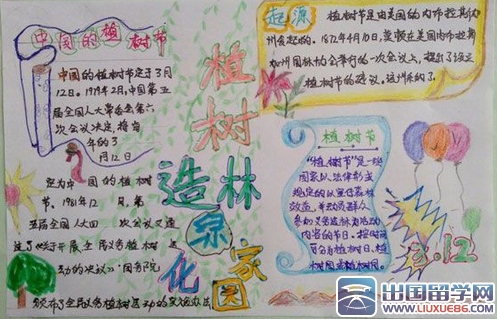 中国的植树节
中国的植树节定于3月
12日。1979年2月,中国第五
届全国人大常委会第六
次会议决定,将每
年的3
月12日
定为中国的植树
节。1981年12月,第
五届全国人大四次会议又通
过了《关于开展全民义务植树运
动的决议》。国务院
颁布了全民义务植树运动的实施办法
植树
造林
绿化
家园
起源
植树节是由美国的内布拉斯加
州发起的。1872年4月10日,莫顿在美国内布拉斯
加州园林协会举行的一次会议上,提出了设立
植树节的建议。这州采纳了
植树节
“植树节”是一些
国家以法律形式
规定的以宣传森林
效益,并动员群众
参加义务造林为活动
内容的节日。按时间
可分为植树日、植
树周或植树月。
3.12
出国留学网
WWW.LIUXUE86.COM